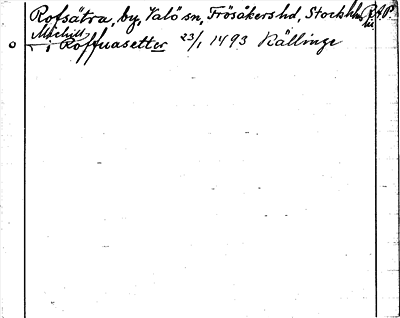 Rofsätra, by, Valö sn, Frösåkers hd, Stockh.
Michill
i Roffuasetter 23/1 1493 Bällinge